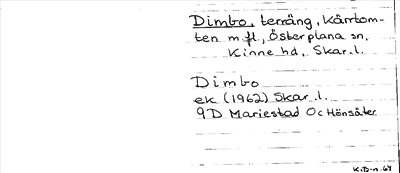 Dimbo, terräng, Kärrtom-
ten m fl., Österplana sn,
Kinne hd., Skar.l.
Dimbo
ek (1962) Skar.l.
9D Mariestad Oc Hönsäter
K.D-n.64